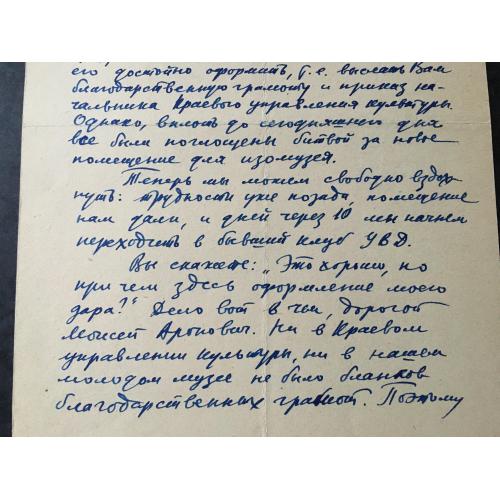 его достойно оформить, т.е. выслать Вам
благодарственную грамоту и приказ на-
чальника Краевого управления культуры.
Однако, вплоть до сегодняшнего дня
все были поглощены битвой за новое
помещение для изомузея.
Теперь мы можем свободно вздох-
нуть: трудности уже позади, помещение
нам дали, и дней через 10 мы начнем
переходить в бывший клуб УВД.
Вы скажете: „Это хорошо, но
при чем здесь оформление моего
дара?" Дело вот в чем, дорогой
Моисей Аронович. Ни в Краевом
управлении культуры, ни в нашем
молодом музее не было бланков
благодарственных грамот. Поэтому